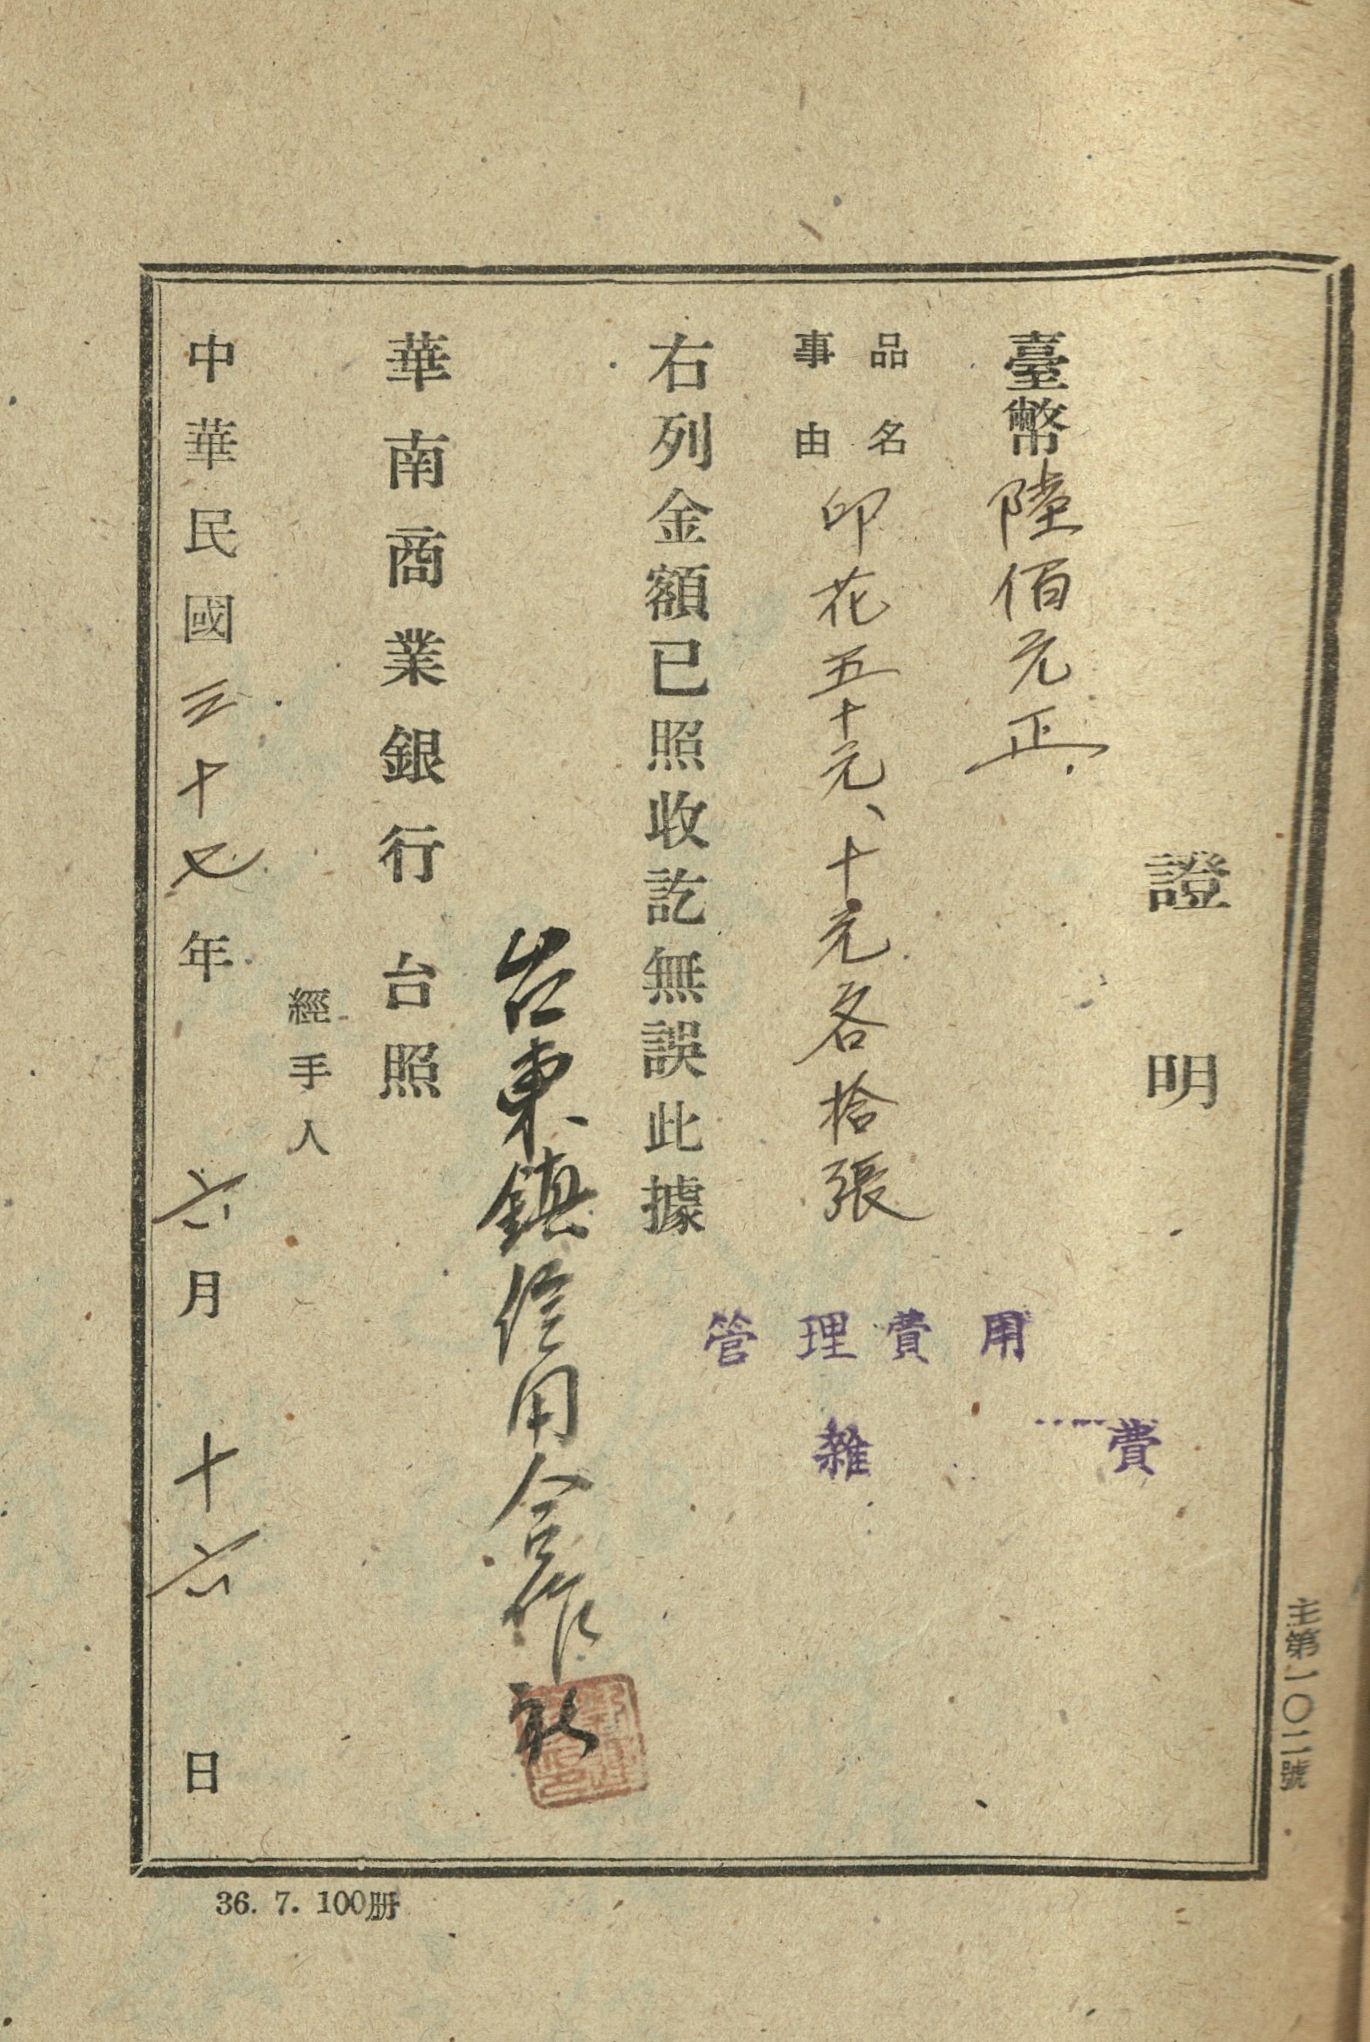 證明
臺幣陸佰元正
品名
事由
印花五十元、十元各拾張
右列金額已照收訖無誤此據
台東鎮信用合作社
華南商業銀行台照
經手人
中華民國三十七年六月十六日
管理費用
雜費
主第一〇二號
36. 7. 100册